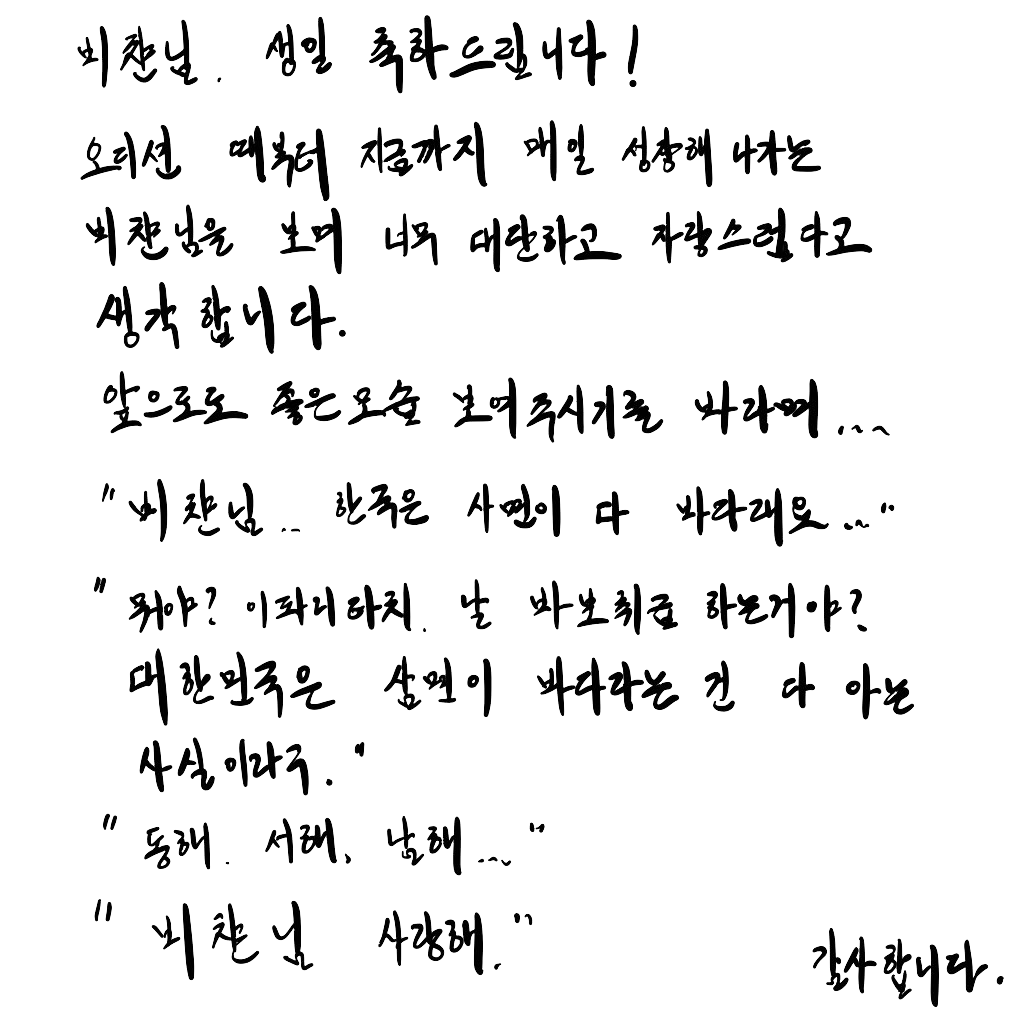 비챤님. 생일 축하드립니다!
오디션 때부터 지금까지 매일 성장해 나가는
비챤님을 보며 너무 대단하고 자랑스럽다고
생각합니다.
앞으로도 좋은모습 보여주시기를 바라며...
"비챤님... 한국은 사면이 다 바다래요..."
"뭐야? 이파리타치. 날 바보취급 하는거야?
대한민국은 삼면이 바다라는 건 다 아는
사실이라구."
"동해. 서해, 남해..."
"비챤님 사랑해."
감사합니다.